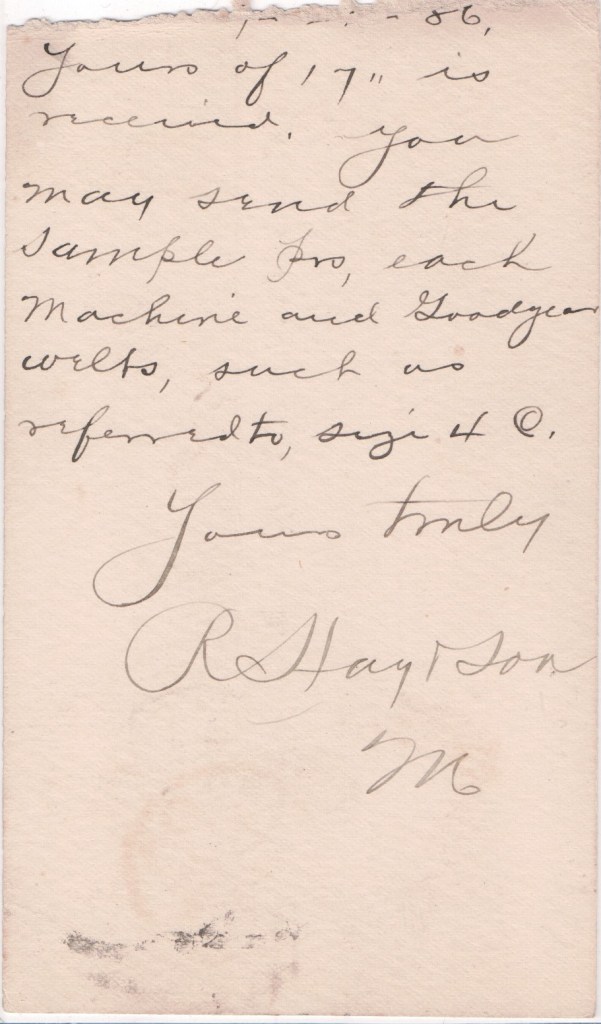 86,
Yours of 17" is
received. You
may send the
sample prs, each
Machine and Goodyear
welts, such as
referred to, size 4 C.
Yours truly
R S Hay & Son
M